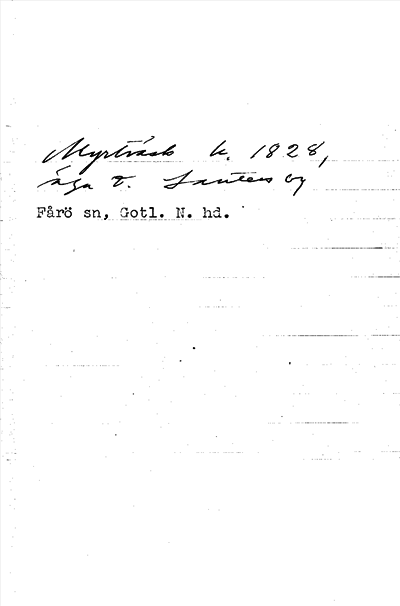 Myrträsk k. 1828,
äga t. Lauters by
Fårö sn, Gotl. N. hd.